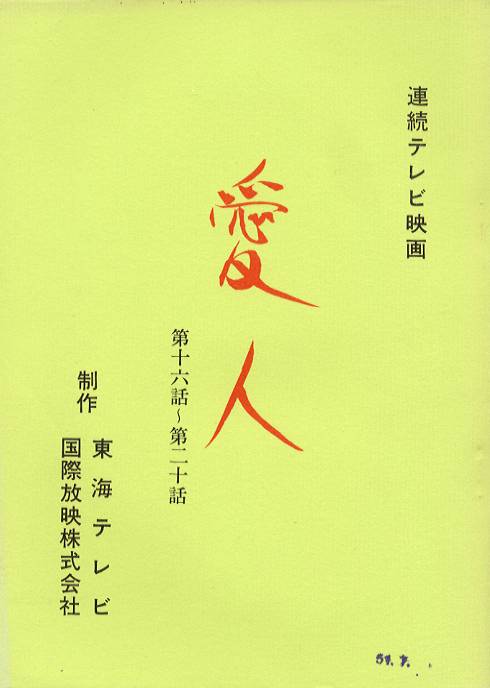 連続テレビ映画
愛人
第十六話~第二十話
制作
東海テレビ
国際放映株式会社
51.7.